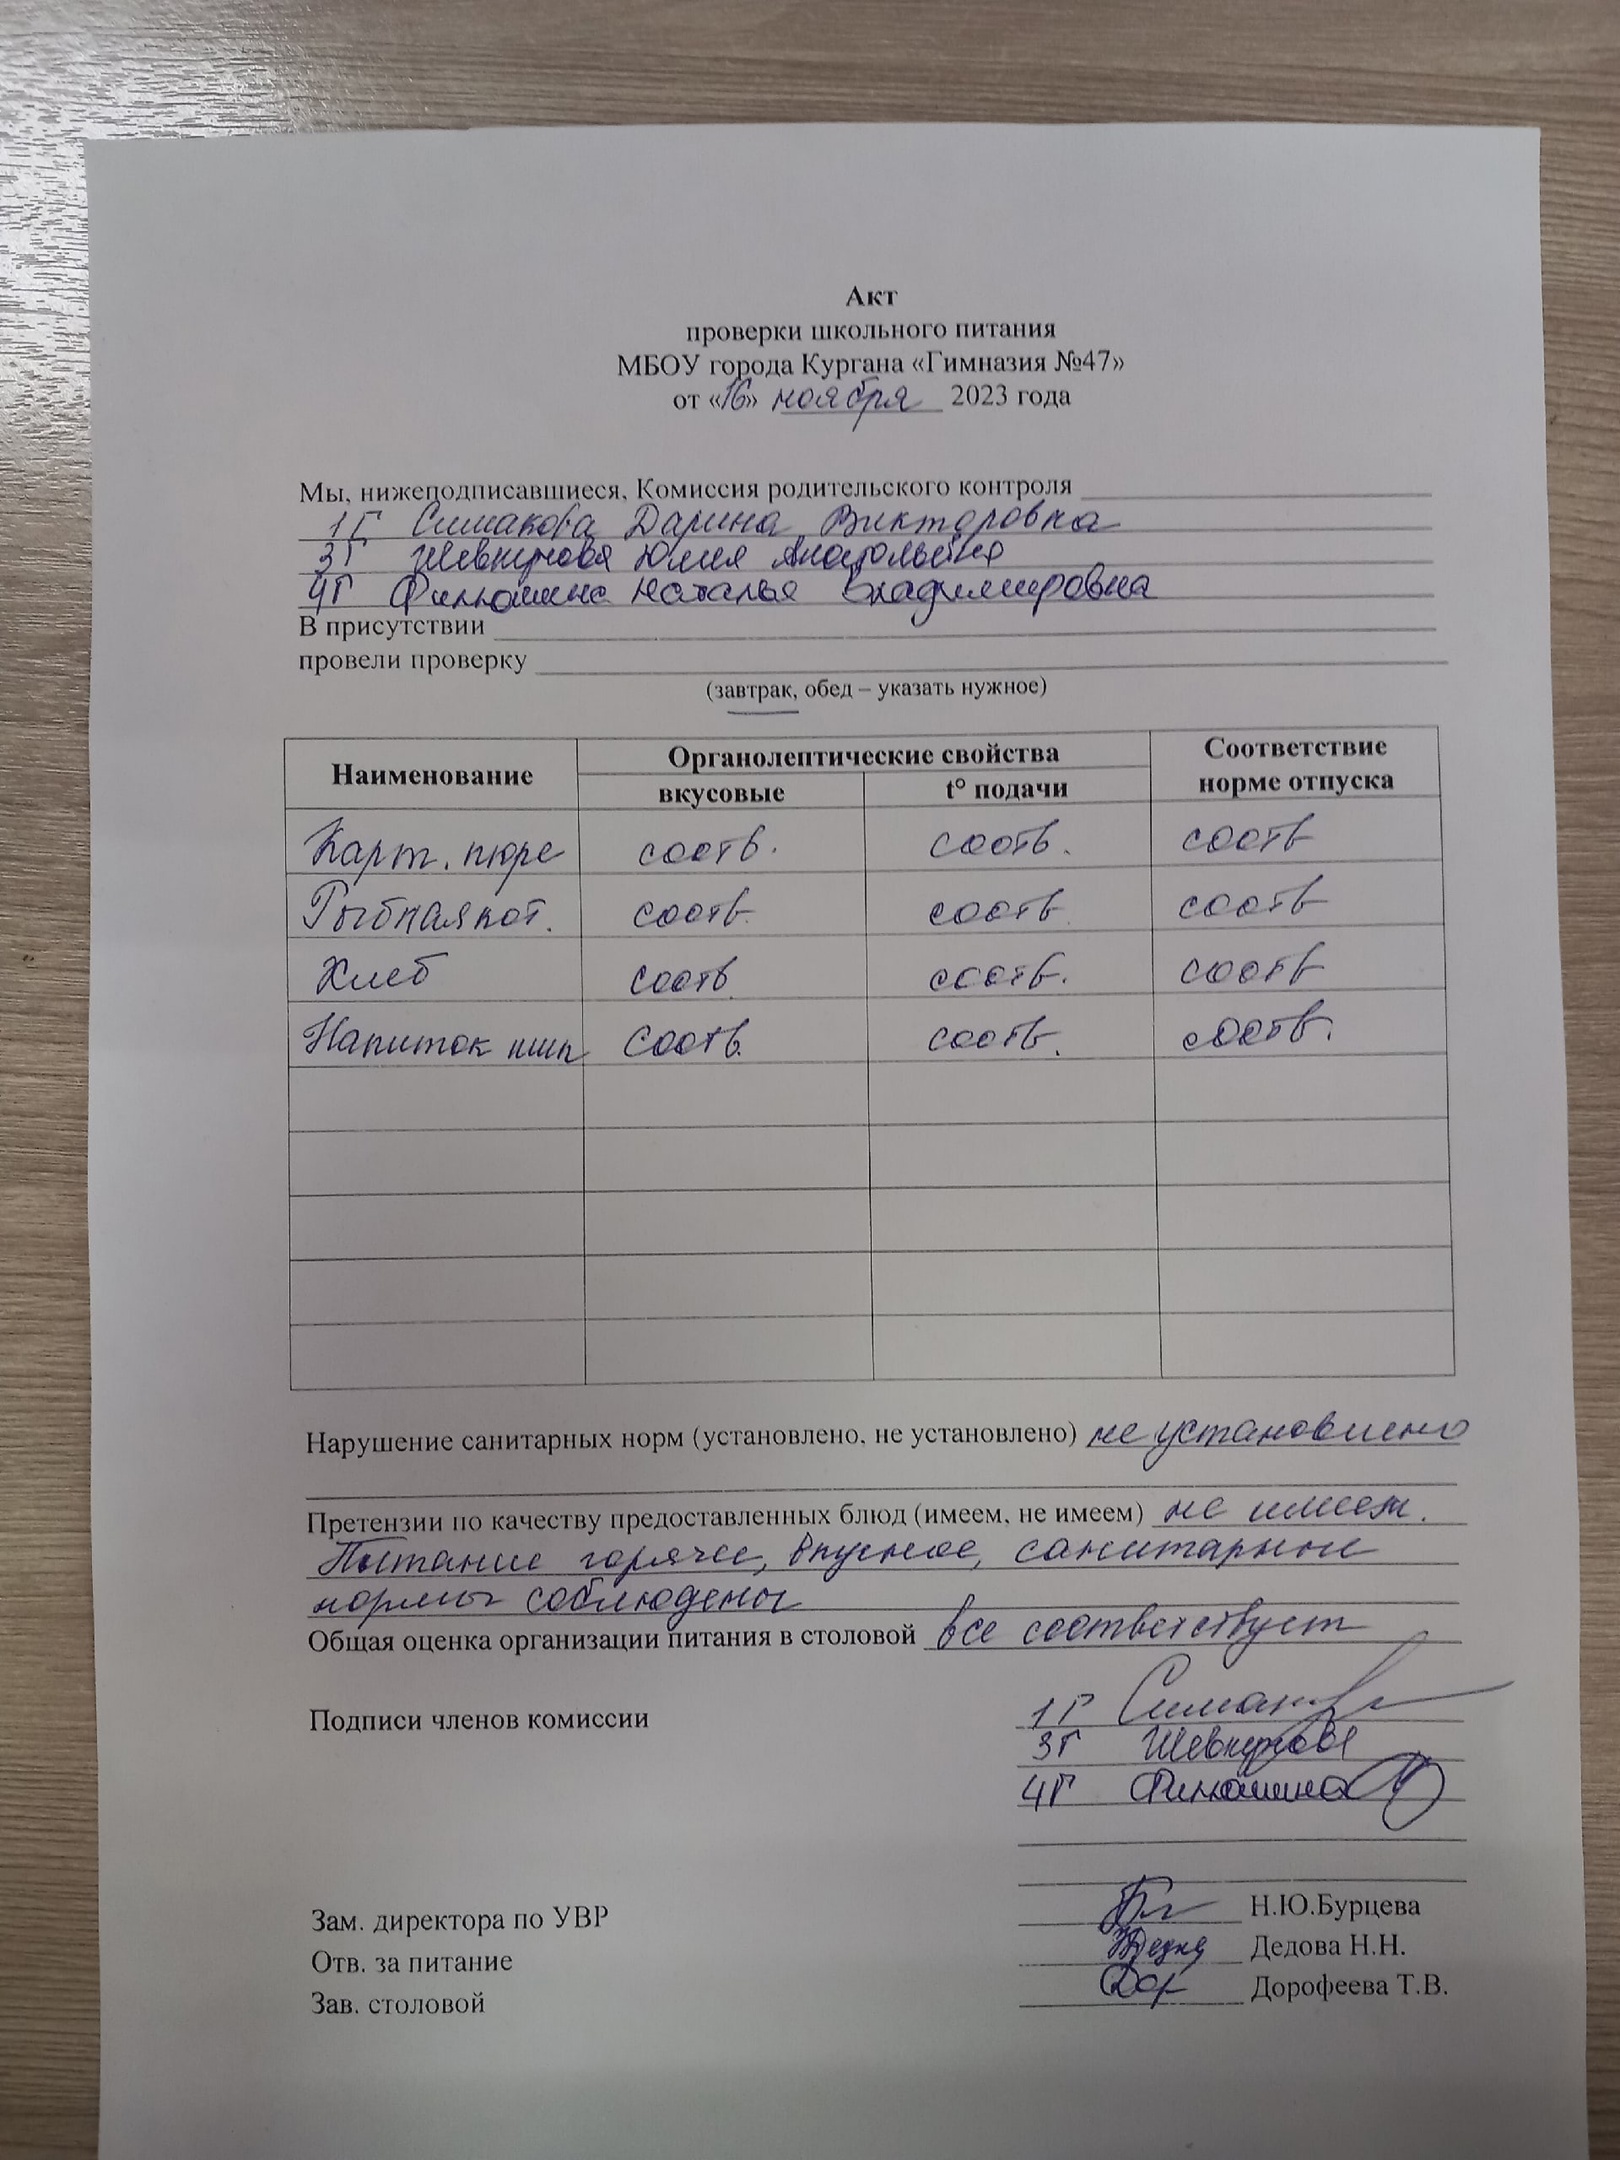 Акт
проверки школьного питания
МБОУ города Кургана «Гимназия №47»
от «16» ноября 2023 года
Мы, нижеподписавшиеся, Комиссия родительского контроля
1Г Симакова Дарина Викторовна
3Г Шевкунова Юлия Анатольевна
4Г Филюшина Наталья Владимировна
В присутствии
провели проверку
(завтрак, обед – указать нужное)
Наименование Органолептические свойства Соответствие норме отпуска
вкусовые t° подачи
Карт. пюре соотв. соотв. соотв
Рыбная кот. соотв. соотв. соотв
Хлеб соотв. соотв. соотв
Напиток шип соотв. соотв. соотв.
Нарушение санитарных норм (установлено, не установлено) не установлено
Претензии по качеству предоставленных блюд (имеем, не имеем) не имеем.
Питание горячее, вкусное, санитарные
нормы соблюдены
Общая оценка организации питания в столовой все соответствует
Подписи членов комиссии 1Г Симакова
3Г Шевкунова
4Г Филюшина
Зам. директора по УВР Н.Ю.Бурцева
Отв. за питание Дедова Н.Н.
Зав. столовой Дорофеева Т.В.